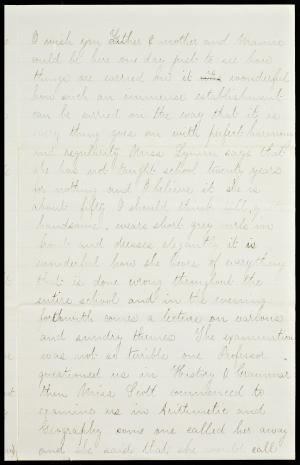 I wish you Father & mother and Mamie
could be here one day just to see how
things are carried on it is wonderful
how such an immense establishment
can be carried on the way that it is
every thing goes on with perfect harmony
and regularity Miss says that
she has not taught school twenty years
for nothing and I believe it she is
about fifty I should think tall, quite
handsome, wears short grey curls in
front and dresses elegantly it is
wonderful how she hears of everything
that is done wrong throughout the
entire school and in the evening
forthwith comes a lecture on various
and sundry themes. The examination
was not so terible one Professor
questioned us in History & Grammar
then Miss Scott commenced to
examine us in Arithmetic and
Geography some one called her away
and she said that she would call